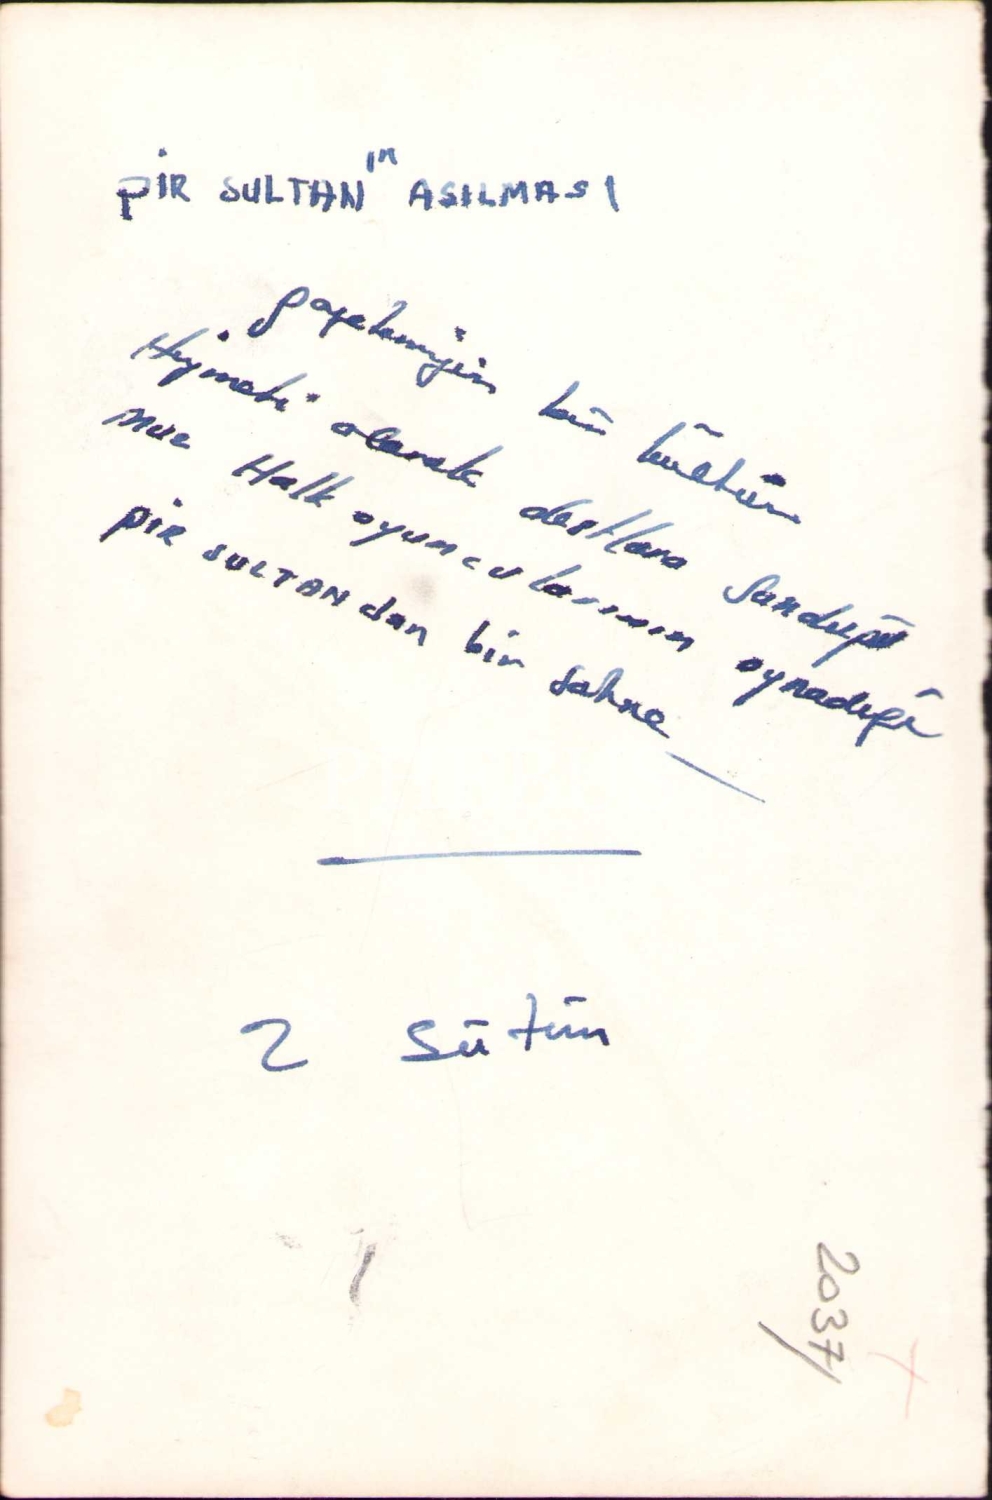 PİR SULTAN'ın ASILMASI
gazetemizin bir kültür
Hizmeti olarak dostlara sunduğu
Halk oyuncularının oynadığı
PİR SULTANdan bir sahne
2 sütun
2037